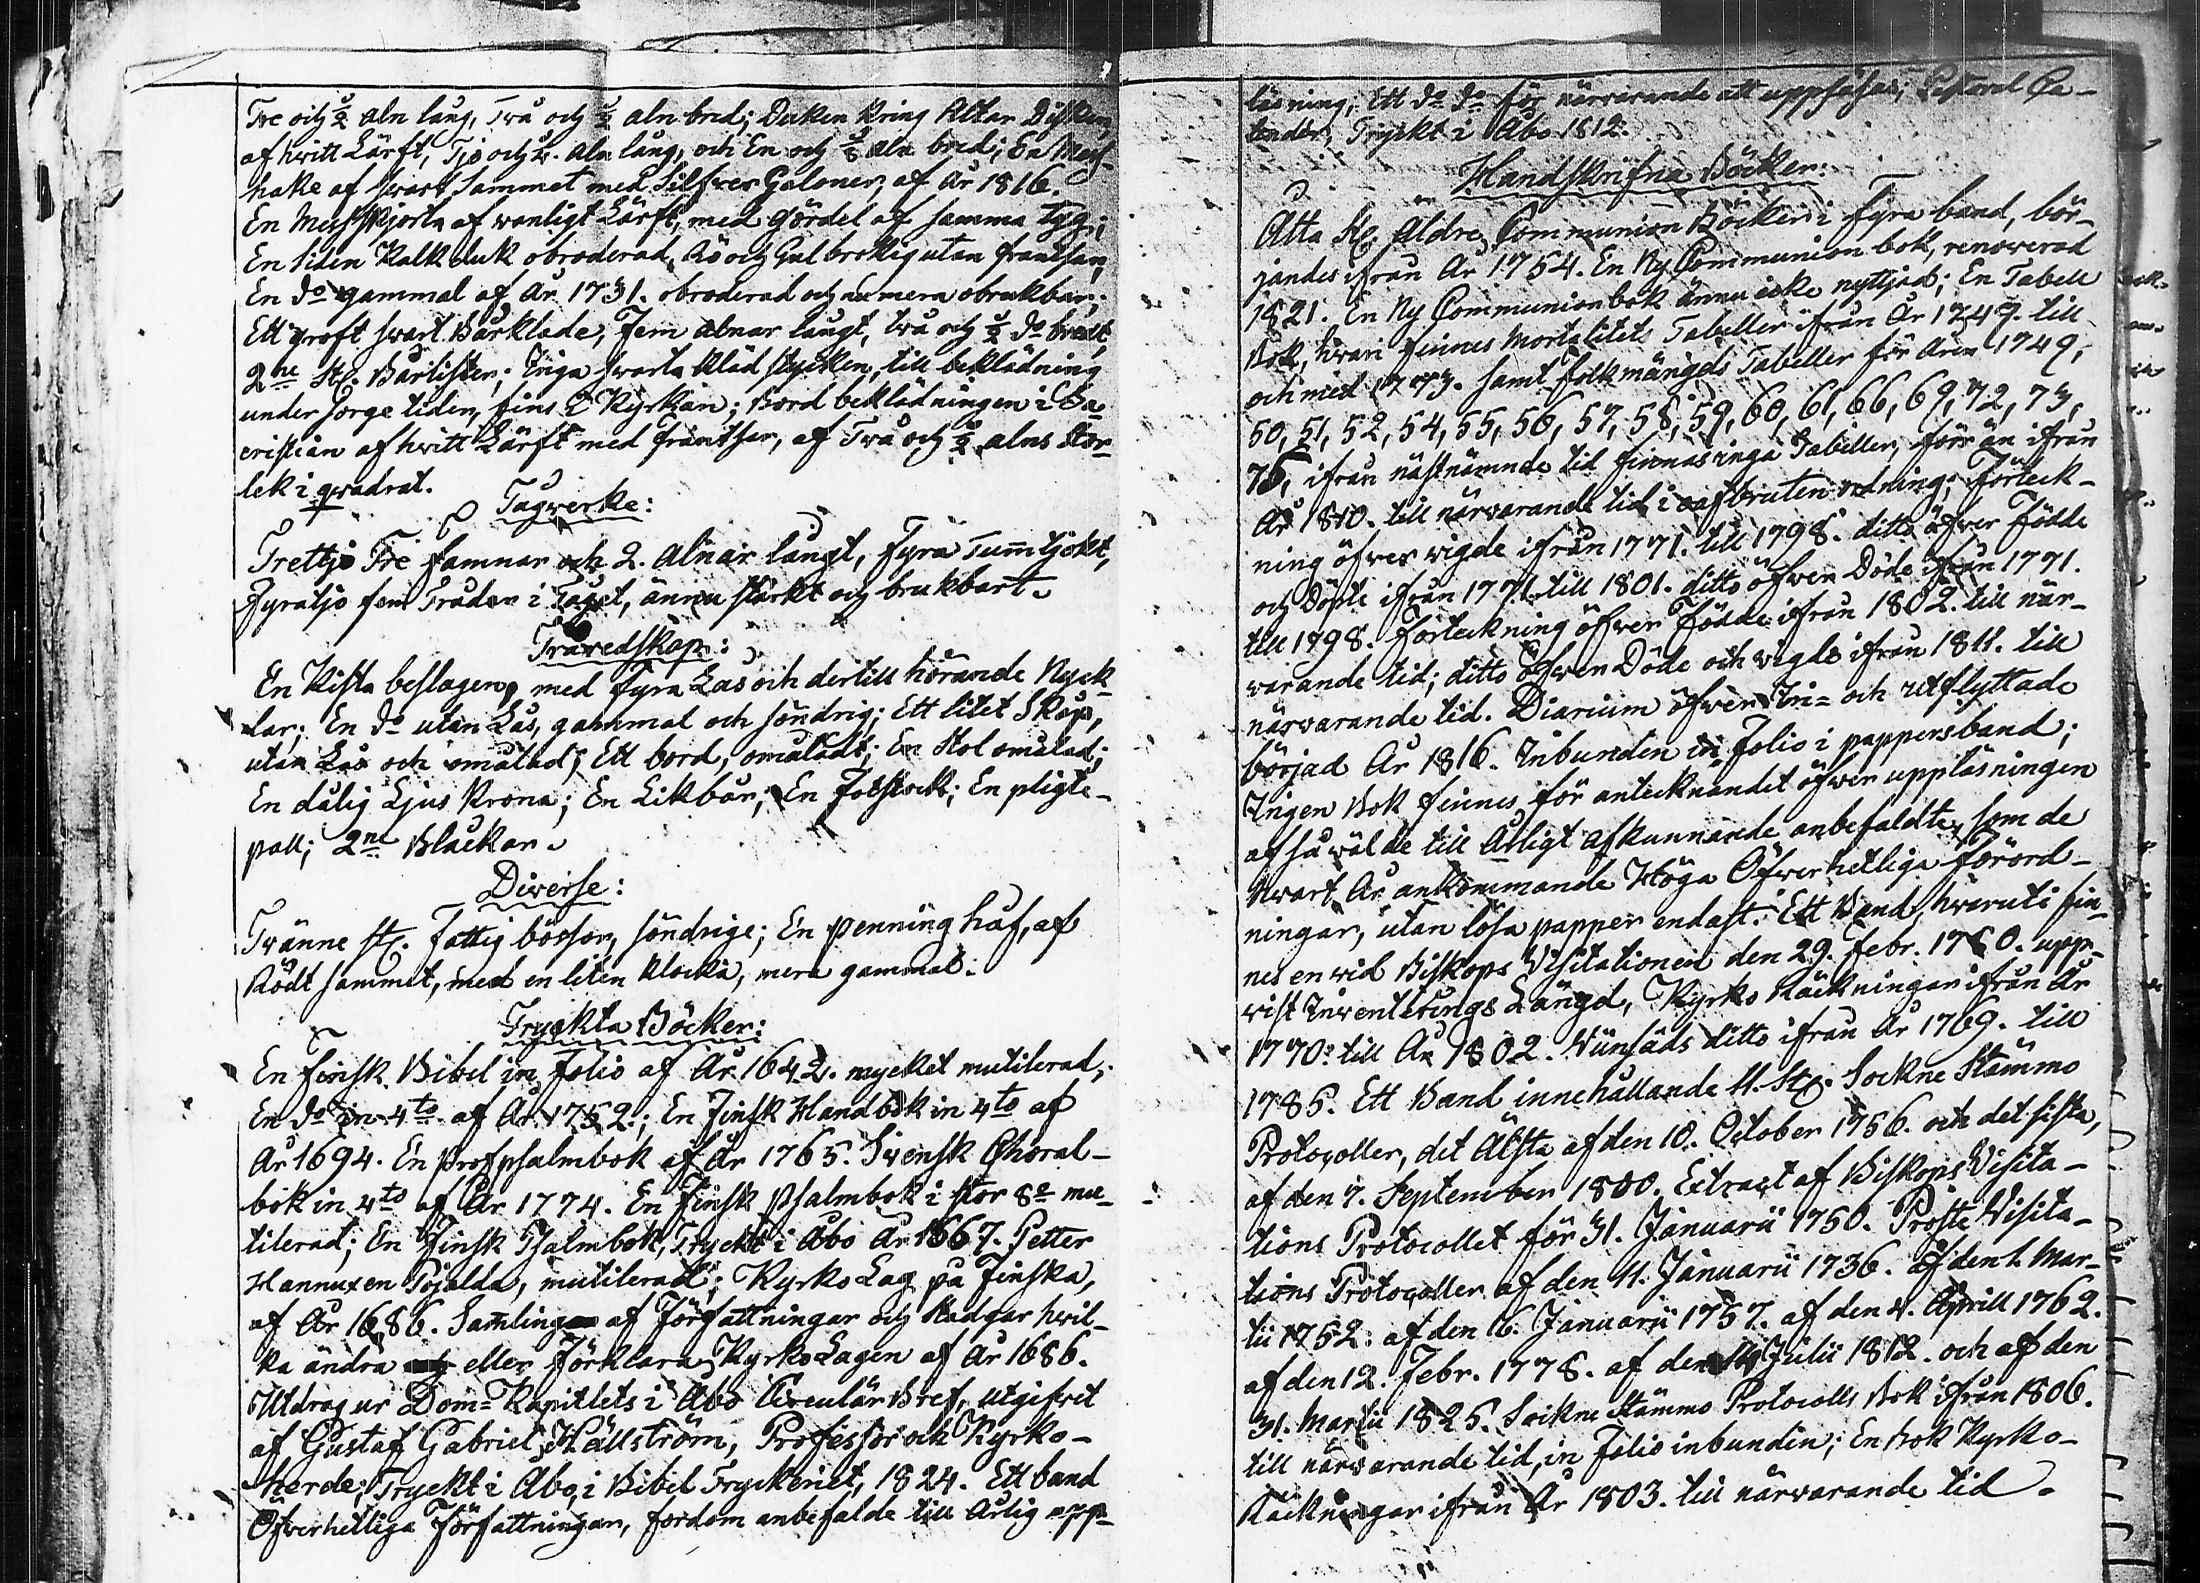 Tre och ½ aln lång, Två och ½ aln bred; Duken kring Altar Disken,
af hvitt Lärft, Tjo och ½. aln lång, och En och ⅝ aln bred; En Mess-
hake af svart Sammet med Silfver Galoner, af År 1816.
En Messskjorta af vanligt Lärft, med gördel af samma tyg;
En Siden Kalkduk obroderad, Rö och Gul brokig utan frantsar,
En do gammal af År 1731. obroderad och numera obrukbar;
Ett groft svart Bårkläde, Fem alnar långt, två och ½ do bredt,
2ne St. Bårlister; Inga svarta klädstycken, till beklädning
under Sorgetiden, fins i Kyrkan; Bord beklädningen i Sa-
cristian af hvitt Lärft med frantsar, af Två och ½ alns stor-
lek i qvadrat.
Tagverke:
Trettjo Tre famnar och 2. Alnar långt, Fyra Tum tjokt,
Fyratjo fem Trådar i Taget, ännu starkt och brukbart.
Träredskap:
En Kista beslagen, med fyra Lås och dertill hörande Nyck-
lar; En do utan Lås, gammal och söndrig; Ett litet Skåp,
utan Lås och omålad; Ett bord, omåladt; En Stol omålad;
En dålig Ljus Krona; En Likbår; En Fotstock; En pligte-
pall; 2ne Blackar.
Diverse:
Tvänne st. Fattig bössor, söndrige; En penning håf, af
Rödt sammet, med en liten klocka, mera gammal.
Tryckta Böcker:
En finsk Bibel in Folio af År 1642. mycket mutilerad;
En do in 4to af År 1752.; En Finsk Handbok in 4to af
År 1694. En profpsalmbok af År 1765. Svensk Choral-
bok in 4to af År 1774. En Finsk psalmbok i stor 8o mu-
tilerad; En Finsk Psalmbok, Tryckt i Åbo År 1667. Petter
Hannuxen Pojalda, mutilerad; Kyrko Lag på Finska,
af År 1686. Samling af Författningar och Stadgar hvil-
ka ändra eller förklara Kyrko Lagen af År 1686.
Utdrag ur Dom-Kapitlets i Åbo Circulär Bref, utgifvet
af Gustaf Gabriel Hällström, Professor och Kyrko-
herde; Tryckt i Åbo, i Bibel Tryckeriet, 1824. Ett band
Öfverhetliga Författningar, fordom anbefalde till Årlig upp-
läsning; Ett do do för närvarande att uppläsas;
Tryckt i Åbo 1812.
Handskrifna Böcker:
Åtta St. äldre Communion Böcker i Fyra band, bör-
jandes ifrån År 1754. En Ny Communion bok, renoverad
1821. En Ny Communionbok ännu icke nyttjad; En Tabell
Bok, hvari finnes Mortalitets Tabeller ifrån År 1749. till
och med 1773. samt folkmängds Tabeller för Åren 1749,
50, 51, 52, 54, 55, 56, 57, 58, 59, 60, 61, 66, 69, 72, 73,
75, ifrån nästnämnde tid finnas inga Tabeller, förr än ifrån
År 1810. till närvarande tid i oafbruten ordning; Förteck-
ning öfver vigde ifrån 1771. till 1798. ditto öfver Födde
och Döpte ifrån 1771. till 1801. ditto öfver Döde ifrån 1771.
till 1798. Förteckning öfver Födde ifrån 1802. till när-
varande tid; ditto öfver Döde och vigde ifrån 1811. till
närvarande tid. Diarium öfver In- och utflyttade
börjad År 1816. Inbunden in Folio i pappersband;
Ingen Bok finnes för antecknandet öfver uppläsningen
af så väl de till Årligt afkunnande anbefaldte, som de
hvart År ankommande Höga Öfverhetliga Förord-
ningar, utan lösa papper endast. Ett Band, hvaruti fin-
nes en vid Biskops Visitationen den 29. Febr. 1760. upp-
vist Inventerings Längd, Kyrko Räkningar ifrån År
1770. till År 1802. Vinsäds ditto ifrån År 1769. till
1785. Ett Band innehållande 11. St. Sockne Stämmo
Protocoller, det Älsta af den 10. October 1756. och det sista,
af den 7. September 1800. Extract af Biskops Visita-
tions Protocollet för 31. Januarii 1750. Proste Visita-
tions Protocoller af den 11. Januarii 1736. af den 1. Mar-
tii 1752. af den 16. Januarii 1757. af den 4. Aprill 1762.
af den 12. Febr. 1778. af den 14 Julii 1812. och af den
31. Martii 1825. Sockne Stämmo Protocolls Bok ifrån 1806.
till närvarande tid, in Folio inbunden; En bok Kyrko-
Räkningar ifrån År 1803. till närvarande tid.